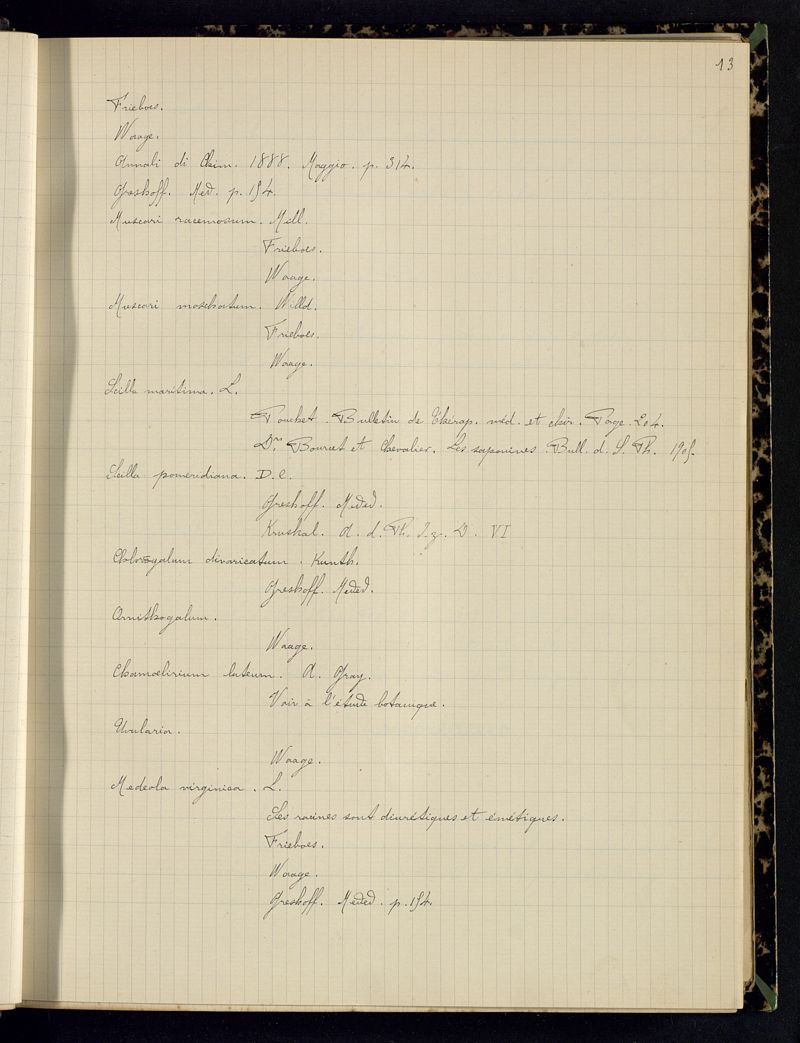 13
Frieboes.
Waage.
Annali di Chim. 1888. Maggio. p. 314.
Greshoff. Med. p. 154.
Muscari racemosum. Mill.
Frieboes.
Waage.
Muscari moschatum. Willd.
Frieboes.
Waage.
Scilla maritima. L.
Pouchet. Bulletin de Thérap. méd. et chir. Page. 204.
Drs Bourcet et Chevalier. Les saponines. Bull. d. S. Ph. 1905.
Scilla pomeridiana. D.C.
Greshoff. Meded.
Kruskal. A. d. Ph. I. z. D. VI
Chlorogalum divaricatum. Kunth.
Greshoff. Meded.
Ornithogalum.
Waage.
Chamaelirium luteum. A. Gray.
Voir à l'étude botanique.
Uvularia.
Waage.
Medeola virginica. L.
Les racines sont diurétiques et émétiques.
Frieboes.
Waage.
Greshoff. Meded. p. 154.